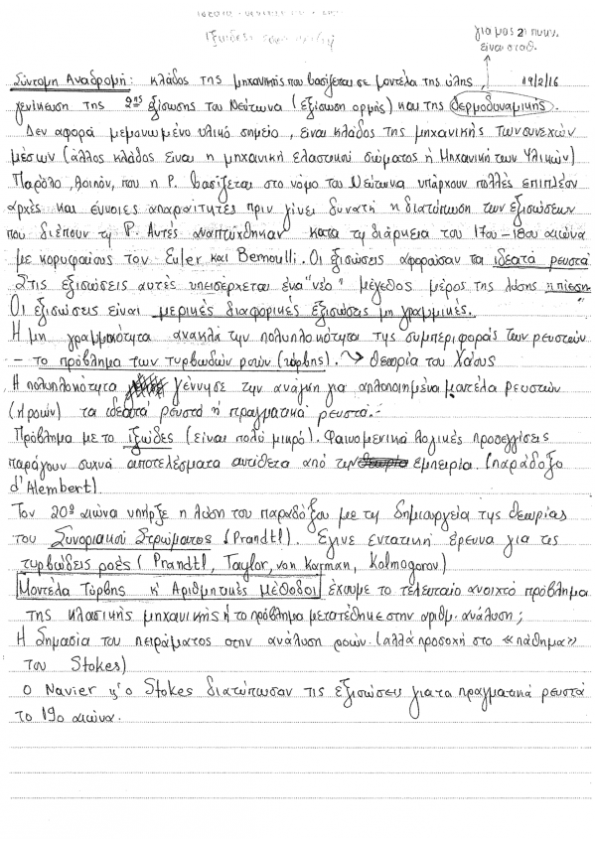 για μας η πυκν.
είναι σταθ.
19/2/16
Σύντομη Αναδρομή: κλάδος της μηχανικής που βασίζεται σε μοντέλα της ύλης,
γενίκευση της 2ης εξίσωσης του Νεύτωνα (εξίσωση ορμής) και της θερμοδυναμικής.
Δεν αφορά μεμονωμένο υλικό σημείο, είναι κλάδος της μηχανικής των συνεχών
μέσων (άλλος κλάδος είναι η μηχανική ελαστικού σώματος ή Μηχανική των Υλικών)
Παρόλο, λοιπόν, που η Ρ. βασίζεται στο νόμο του Νεύτωνα υπάρχουν πολλές επιπλέον
αρχές και έννοιες απαραίτητες πριν γίνει δυνατή η διατύπωση των εξισώσεων
που διέπουν τη Ρ. Αυτές αναπτύχθηκαν κατα τη διάρκεια του 17ου-18ου αιώνα
με κορυφαίους τον Euler και Bernoulli. Οι εξισώσεις αφορούσαν τα ιδεατά ρευστά
Στις εξισώσεις αυτές υπεισερχεται ένα "νέο" μέγεθος μέρος της λύσης η πίεση
Οι εξισώσεις είναι μερικές διαφορικές εξισώσεις μη γραμμικές.
Η μη γραμμικότητα ανακλά την πολυπλοκότητα της συμπεριφοράς των ρευστών
- το πρόβλημα των τυρβωδών ροών (τύρβης). → Θεωρία του Χάους
Η πολυπλοκότητα γέννησε την ανάγκη για απλοποιημένα μοντέλα ρευστών
(ή ροών) τα ιδεατά ρευστά ή πραγματικά ρευστά.-
Πρόβλημα με το ιξώδες (είναι πολύ μικρό). Φαινομενικά λογικές προσεγγίσεις
παράγουν συχνά αποτελέσματα αντίθετα από την εμπειρία. (παράδοξο
d'Alembert)
Τον 20ο αιώνα υπήρξε η λύση του παραδόξου με τη δημιουργεία της θεωρίας
του Συνοριακού Στρώματος (Prandtl). Έγινε εντατική έρευνα για τις
τυρβώδεις ροές (Prandtl, Taylor, von Karman, Kolmogorov)
Μοντέλα Τύρβης κ' Αριθμητικές μέθοδοι έχουμε το τελευταίο ανοιχτό πρόβλημα
της κλασικής μηχανικής ή το πρόβλημα μετατέθηκε στην αριθμ. ανάλυση;
Η σημασία του πειράματος στην ανάλυση ροών. (αλλά προσοχή στο «πάθημα»
του Stokes)
Ο Navier κ' ο Stokes διατύπωσαν τις εξισώσεις για τα πραγματικά ρευστά
το 19ο αιώνα.